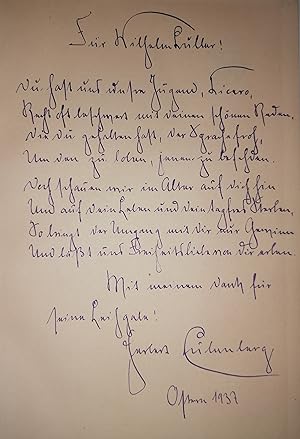 Für Wilhelm Kuller!
Du hast uns unsre Jugend, Cicero,
Recht oft beschwert mit deinen schönen Reden,
Die du gehalten hast, der Sprache froh,
Um den zu loben, jenen zu befehden.
Doch schauen wir im Alter auf dich hin
Und auf dein Leben und dein tapfres Sterben,
So bringt der Umgang mit dir nur Gewinn
Und läßt uns Freiheitsliebe von dir erben.
Mit meinem Dank für
seine Leihgabe!
Herbert Eulenberg
Ostern 1937